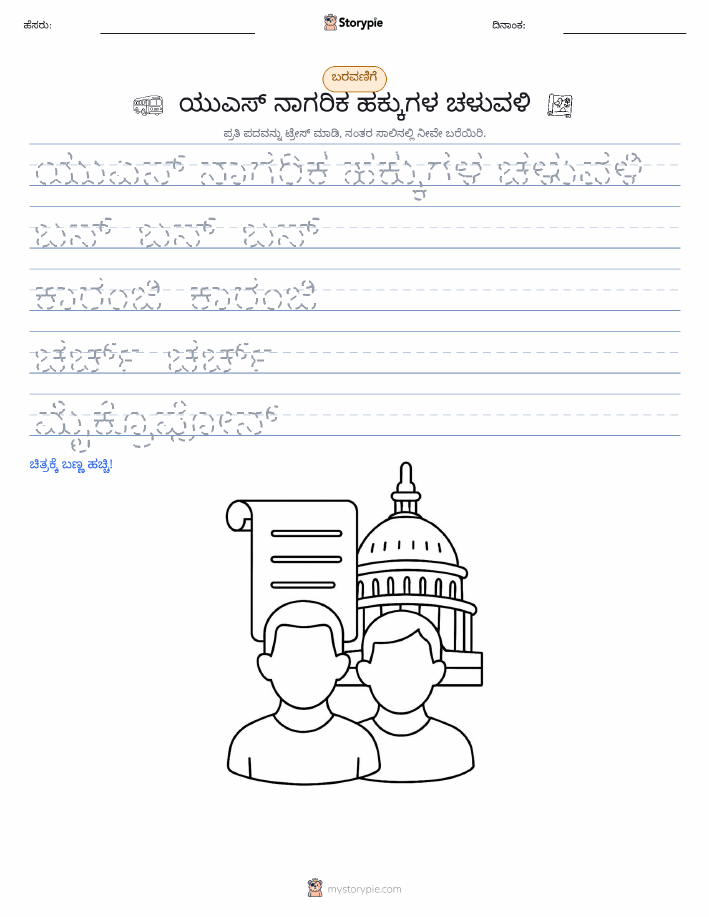 ಹೆಸರು:
Storypie
ದಿನಾಂಕ:
ಬರವಣಿಗೆ
ಯುಎಸ್ ನಾಗರಿಕ ಹಕ್ಕುಗಳ ಚಳುವಳಿ
ಪ್ರತಿ ಪದವನ್ನು ಟ್ರೇಸ್ ಮಾಡಿ, ನಂತರ ಸಾಲಿನಲ್ಲಿ ನೀವೇ ಬರೆಯಿರಿ.
ಯುಎಸ್ ನಾಗರಿಕ ಹಕ್ಕುಗಳ ಚಳುವಳಿ
ಬಸ್ ಬಸ್ ಬಸ್
ಕಾರಂಜಿ ಕಾರಂಜಿ
ಚರ್ಚ್ ಚರ್ಚ್
ಮೈಕ್ರೊಫೋನ್
ಚಿತ್ರಕ್ಕೆ ಬಣ್ಣ ಹಚ್ಚಿ!
mystorypie.com